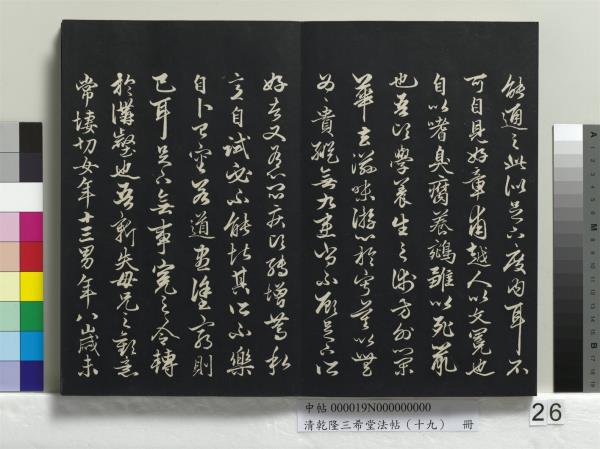 能通之此似足下度內耳不
可自見好章甫越人以文冕也
自以嗜臭腐養鵷雛以死鼠
也吾頃學養生之術方外榮
華去滋味游心於寂莫以無
為〻貴縱無九患尚不顧足下所
好者又有心悶疾頃轉增篤私
意自試必不能堪其所不樂
自卜已審若道盡塗窮則
已耳足下無事冤之令轉
於溝壑也吾新失母兄之歡意
常悽切女年十三男年八歲未
中帖 000019N000000000
清乾隆三希堂法帖（十九） 冊
26